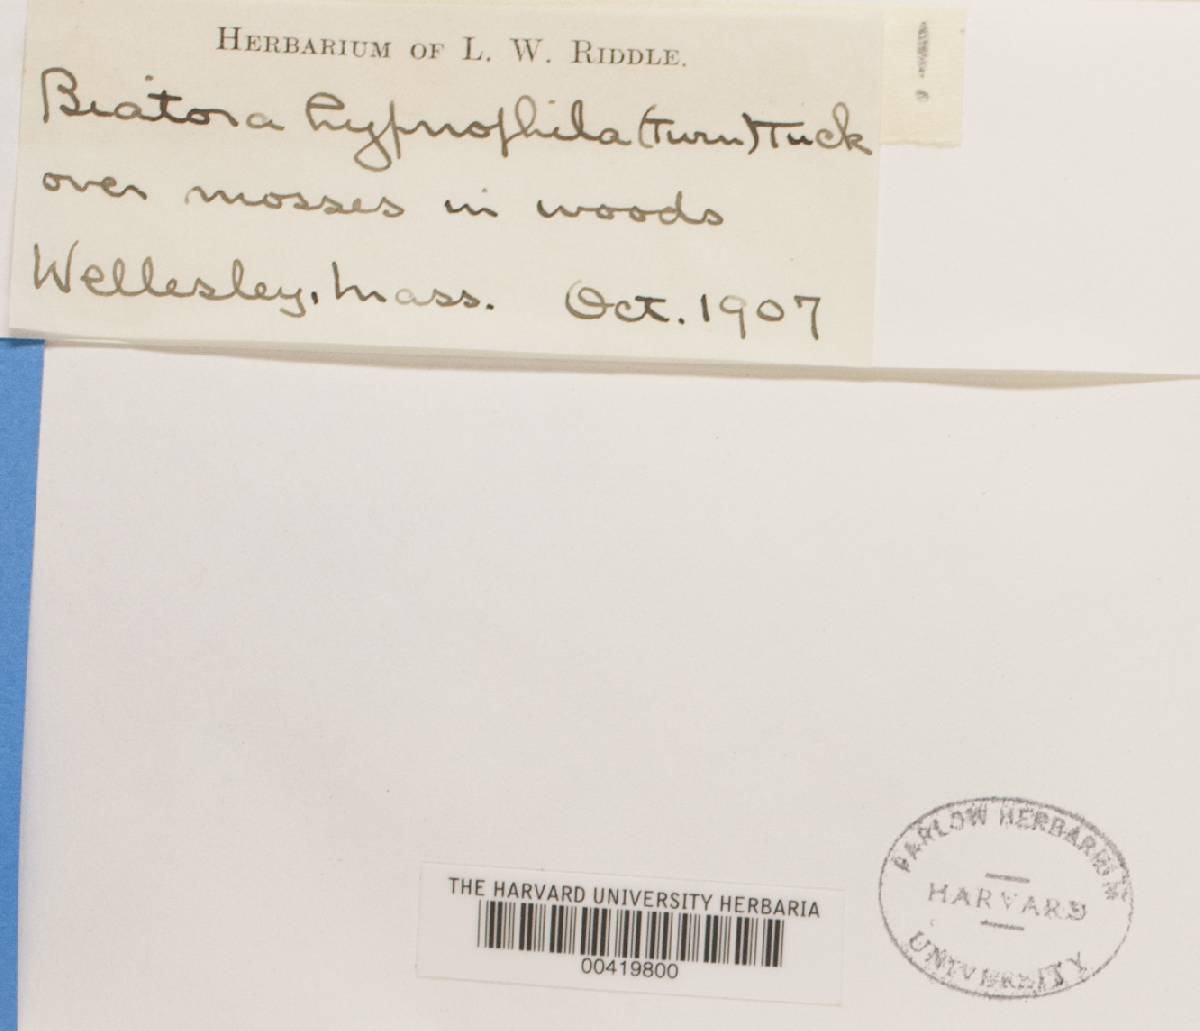 HERBARIUM OF L. W. RIDDLE.
Biatora hypnophila (Turn) Tuck
over mosses in woods
Wellesley, Mass. Oct. 1907
THE HARVARD UNIVERSITY HERBARIA
00419800
FARLOW HERBARIUM
HARVARD
UNIVERSITY